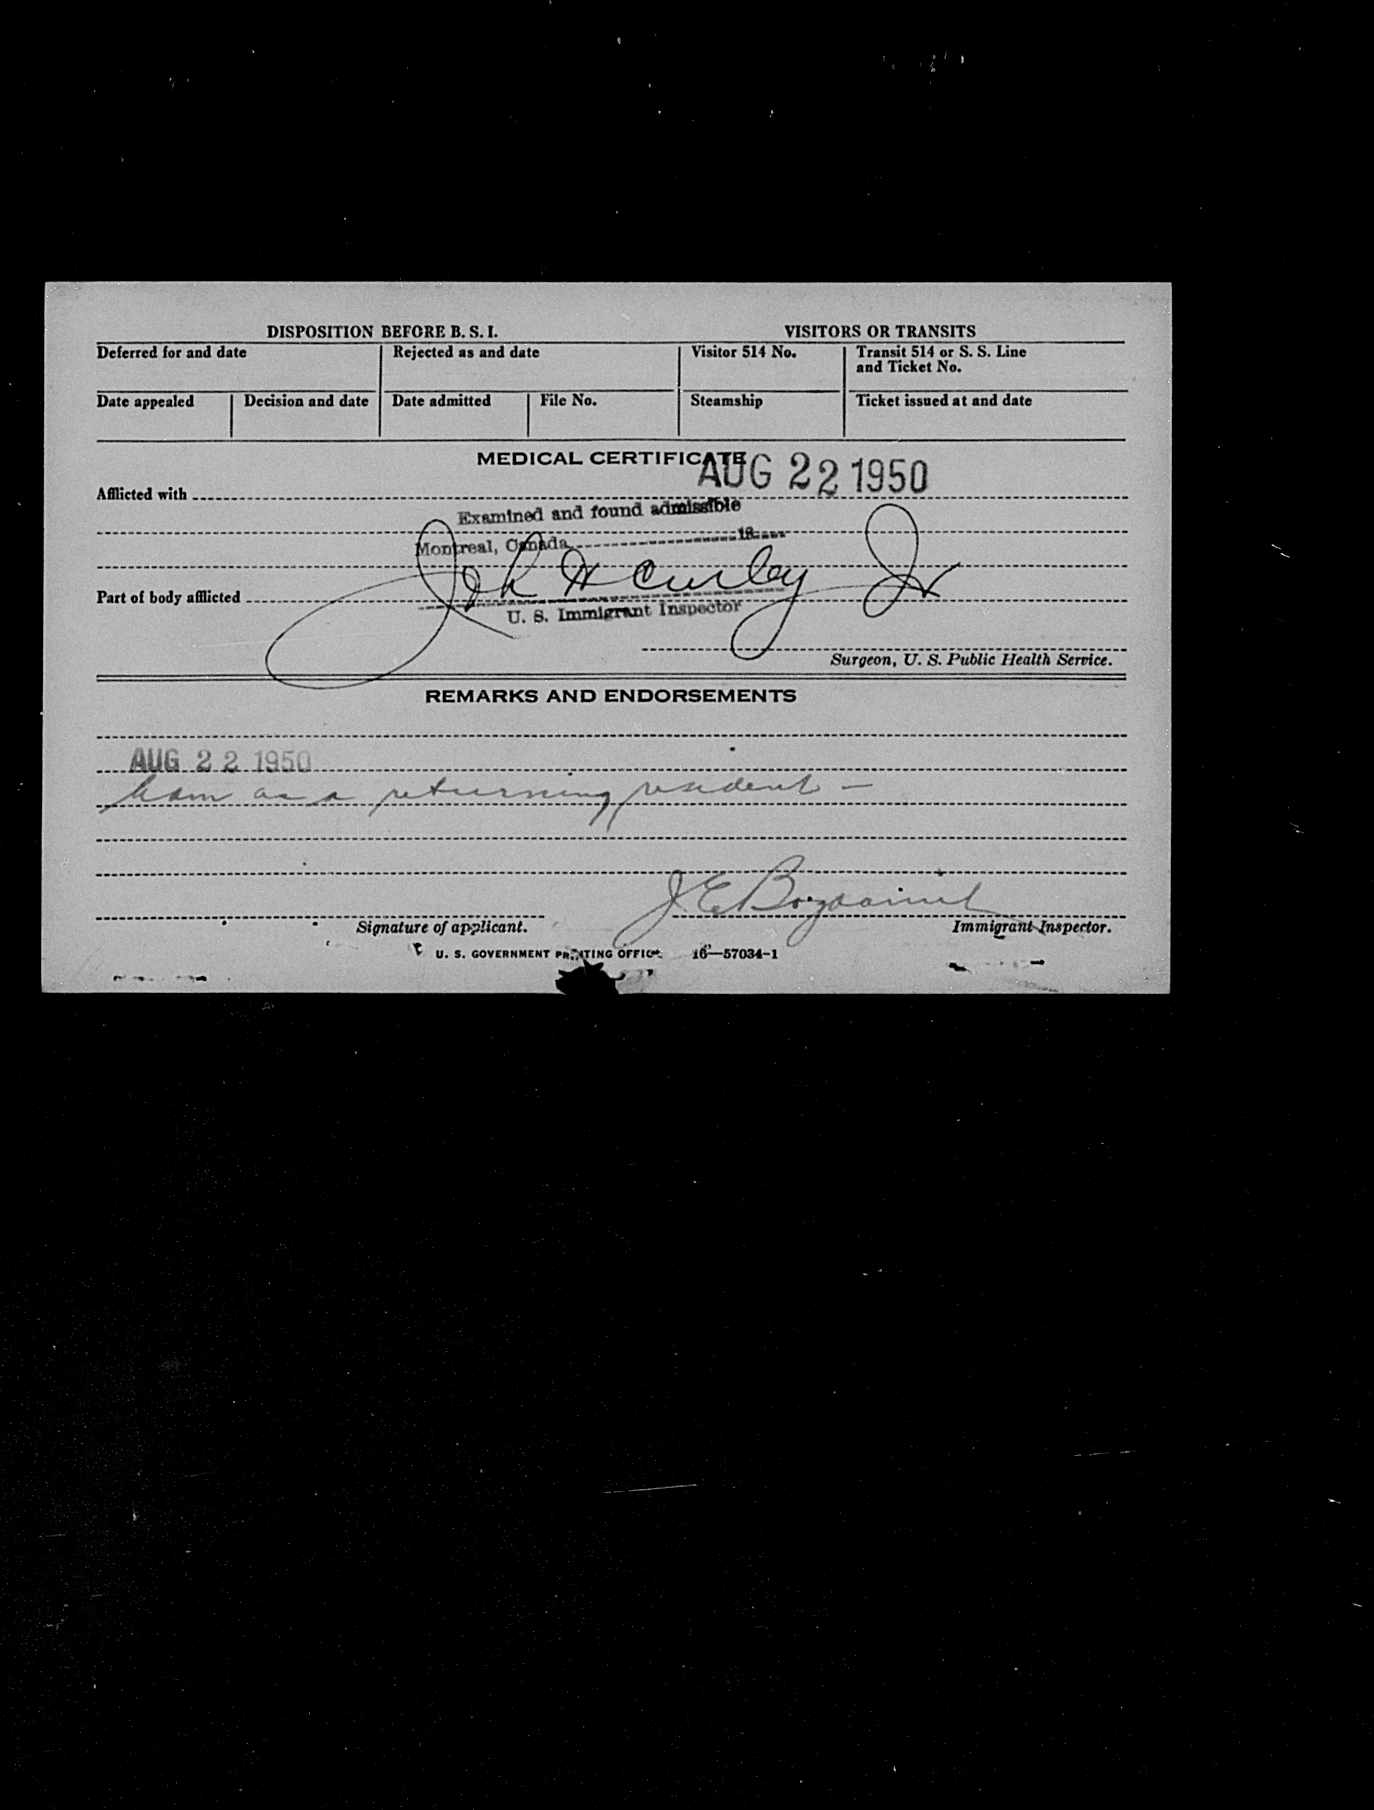 DISPOSITION BEFORE B. S. I.
VISITORS OR TRANSITS
Deferred for and date
Rejected as and date
Visitor 514 No.
Transit 514 or S. S. Line
and Ticket No.
Date appealed
Decision and date
Date admitted
File No.
Steamship
Ticket issued at and date
MEDICAL CERTIFICATE
AUG 22 1950
Afflicted with
Examined and found admissible
Montreal, Canada
W Curley Jr
Part of body afflicted
U. S. Immigrant Inspector
Surgeon, U. S. Public Health Service.
REMARKS AND ENDORSEMENTS
AUG 22 1950
as a returning resident –
J. E.
Signature of applicant.
Immigrant Inspector.
U. S. GOVERNMENT PRINTING OFFICE 16—57034-1